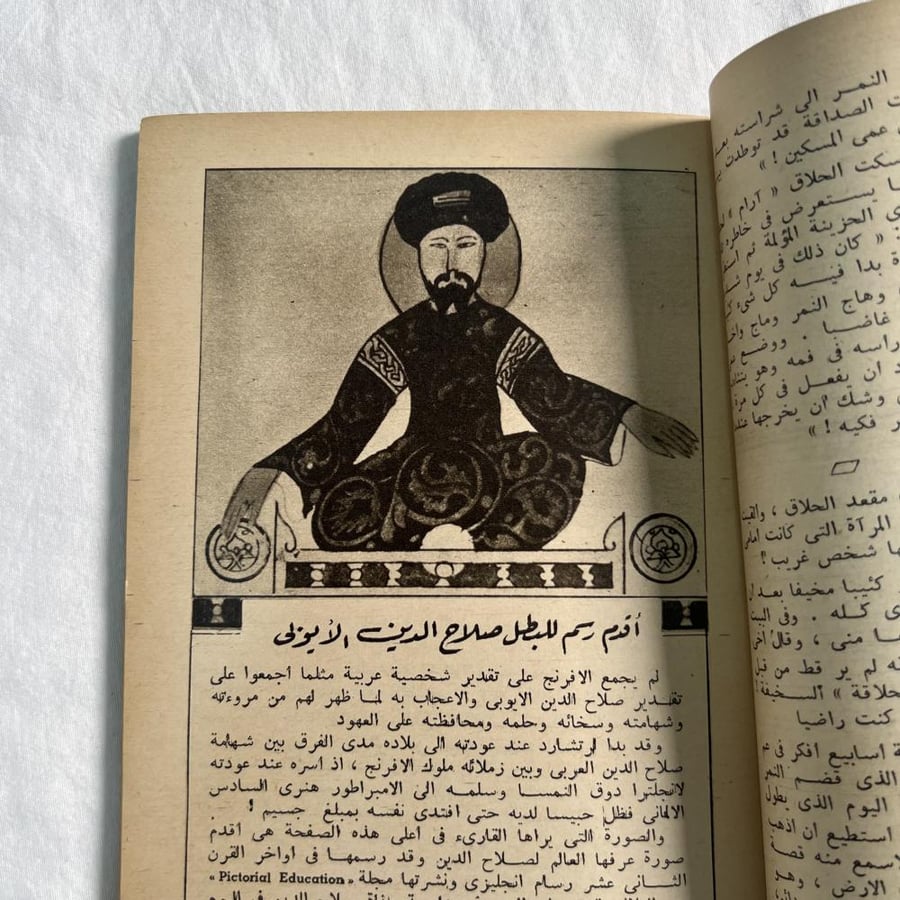 أقدم رسم للبطل صلاح الدين الأيوبى
لم يجمع الافرنج على تقدير شخصية عربية مثلما أجمعوا على
تقدير صلاح الدين الايوبى والاعجاب به لما ظهر لهم من مروءته
وشهامته وسخائه وحلمه ومحافظته على العهود
وقد بدا لرتشارد عند عودته الى بلاده مدى الفرق بين شهامة
صلاح الدين العربى وبين زملائه ملوك الافرنج ، اذ اسره عند عودته
لانجلترا دوق النمسا وسلمه الى الامبراطور هنرى السادس
الالمانى فظل حبيسا لديه حتى افتدى نفسه بمبلغ جسيم !
والصورة التى يراها القارىء فى اعلى هذه الصفحة هى أقدم
صورة عرفها العالم لصلاح الدين وقد رسمها فى اواخر القرن
الثانى عشر رسام انجليزى ونشرتها مجلة « Pictorial Education »
النمر الى شراسته
الصداقة قد توطدت
عمى المسكين ! »
الحلاق « آرام »
يستعرض فى خاطره
الحزينة المؤلمة ثم
« كان ذلك فى يوم
بدا فيه كل شىء
وهاج النمر وماج
غاضبا . ووضع
راسه فى فمه وهو
ان يفعل فى كل
وشك أن يخرجها
فكيه ! »
مقعد الحلاق ،
المرآة التى كانت امامى
شخص غريب ؟
كئيبا مخيفا بعد
كله . وفى البيت
منى ، وقال
لم ير قط من قبل
« السخيفة !
كنت راضيا
اسابيع افكر فى
الذى قضم النمر
اليوم الذى يطول
استطيع ان اذهب
لاسمع منه قصة
الارض ، وهو